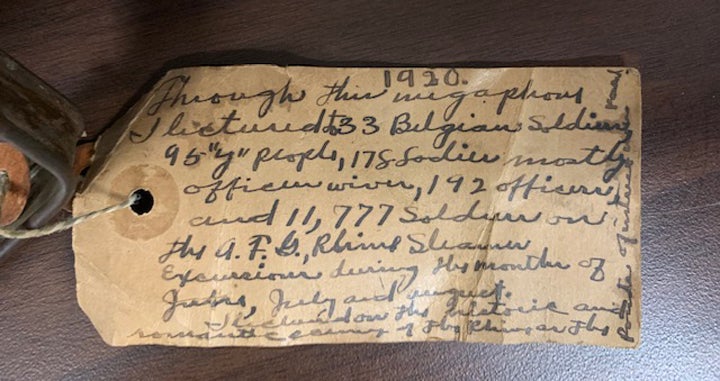 1920.
Through this megaphone
I lectured to 33 Belgian Soldiers
95 "y" people, 178 Ladies mostly
officers wives, 192 officers,
and 11,777 Soldiers on
the A.F.G., Rhine Steamer
Excursions during the months of
June, July and august.
I lectured on the historic and
romantic scenery of the Rhine as the
boat